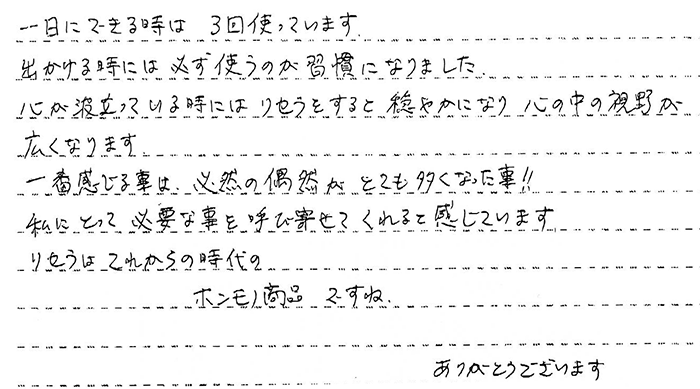 一日にできる時は 3回使っています.
出かける時には必ず使うのが習慣になりました.
心が波立っている時にはリセラをすると穏やかになり 心の中の視野が
広くなります.
一番感じる事は、必然の偶然がとても多くなった事!!
私にとって必要な事を呼び寄せてくれると感じています
リセラはこれからの時代の
ホンモノ商品ですね.
ありがとうございます